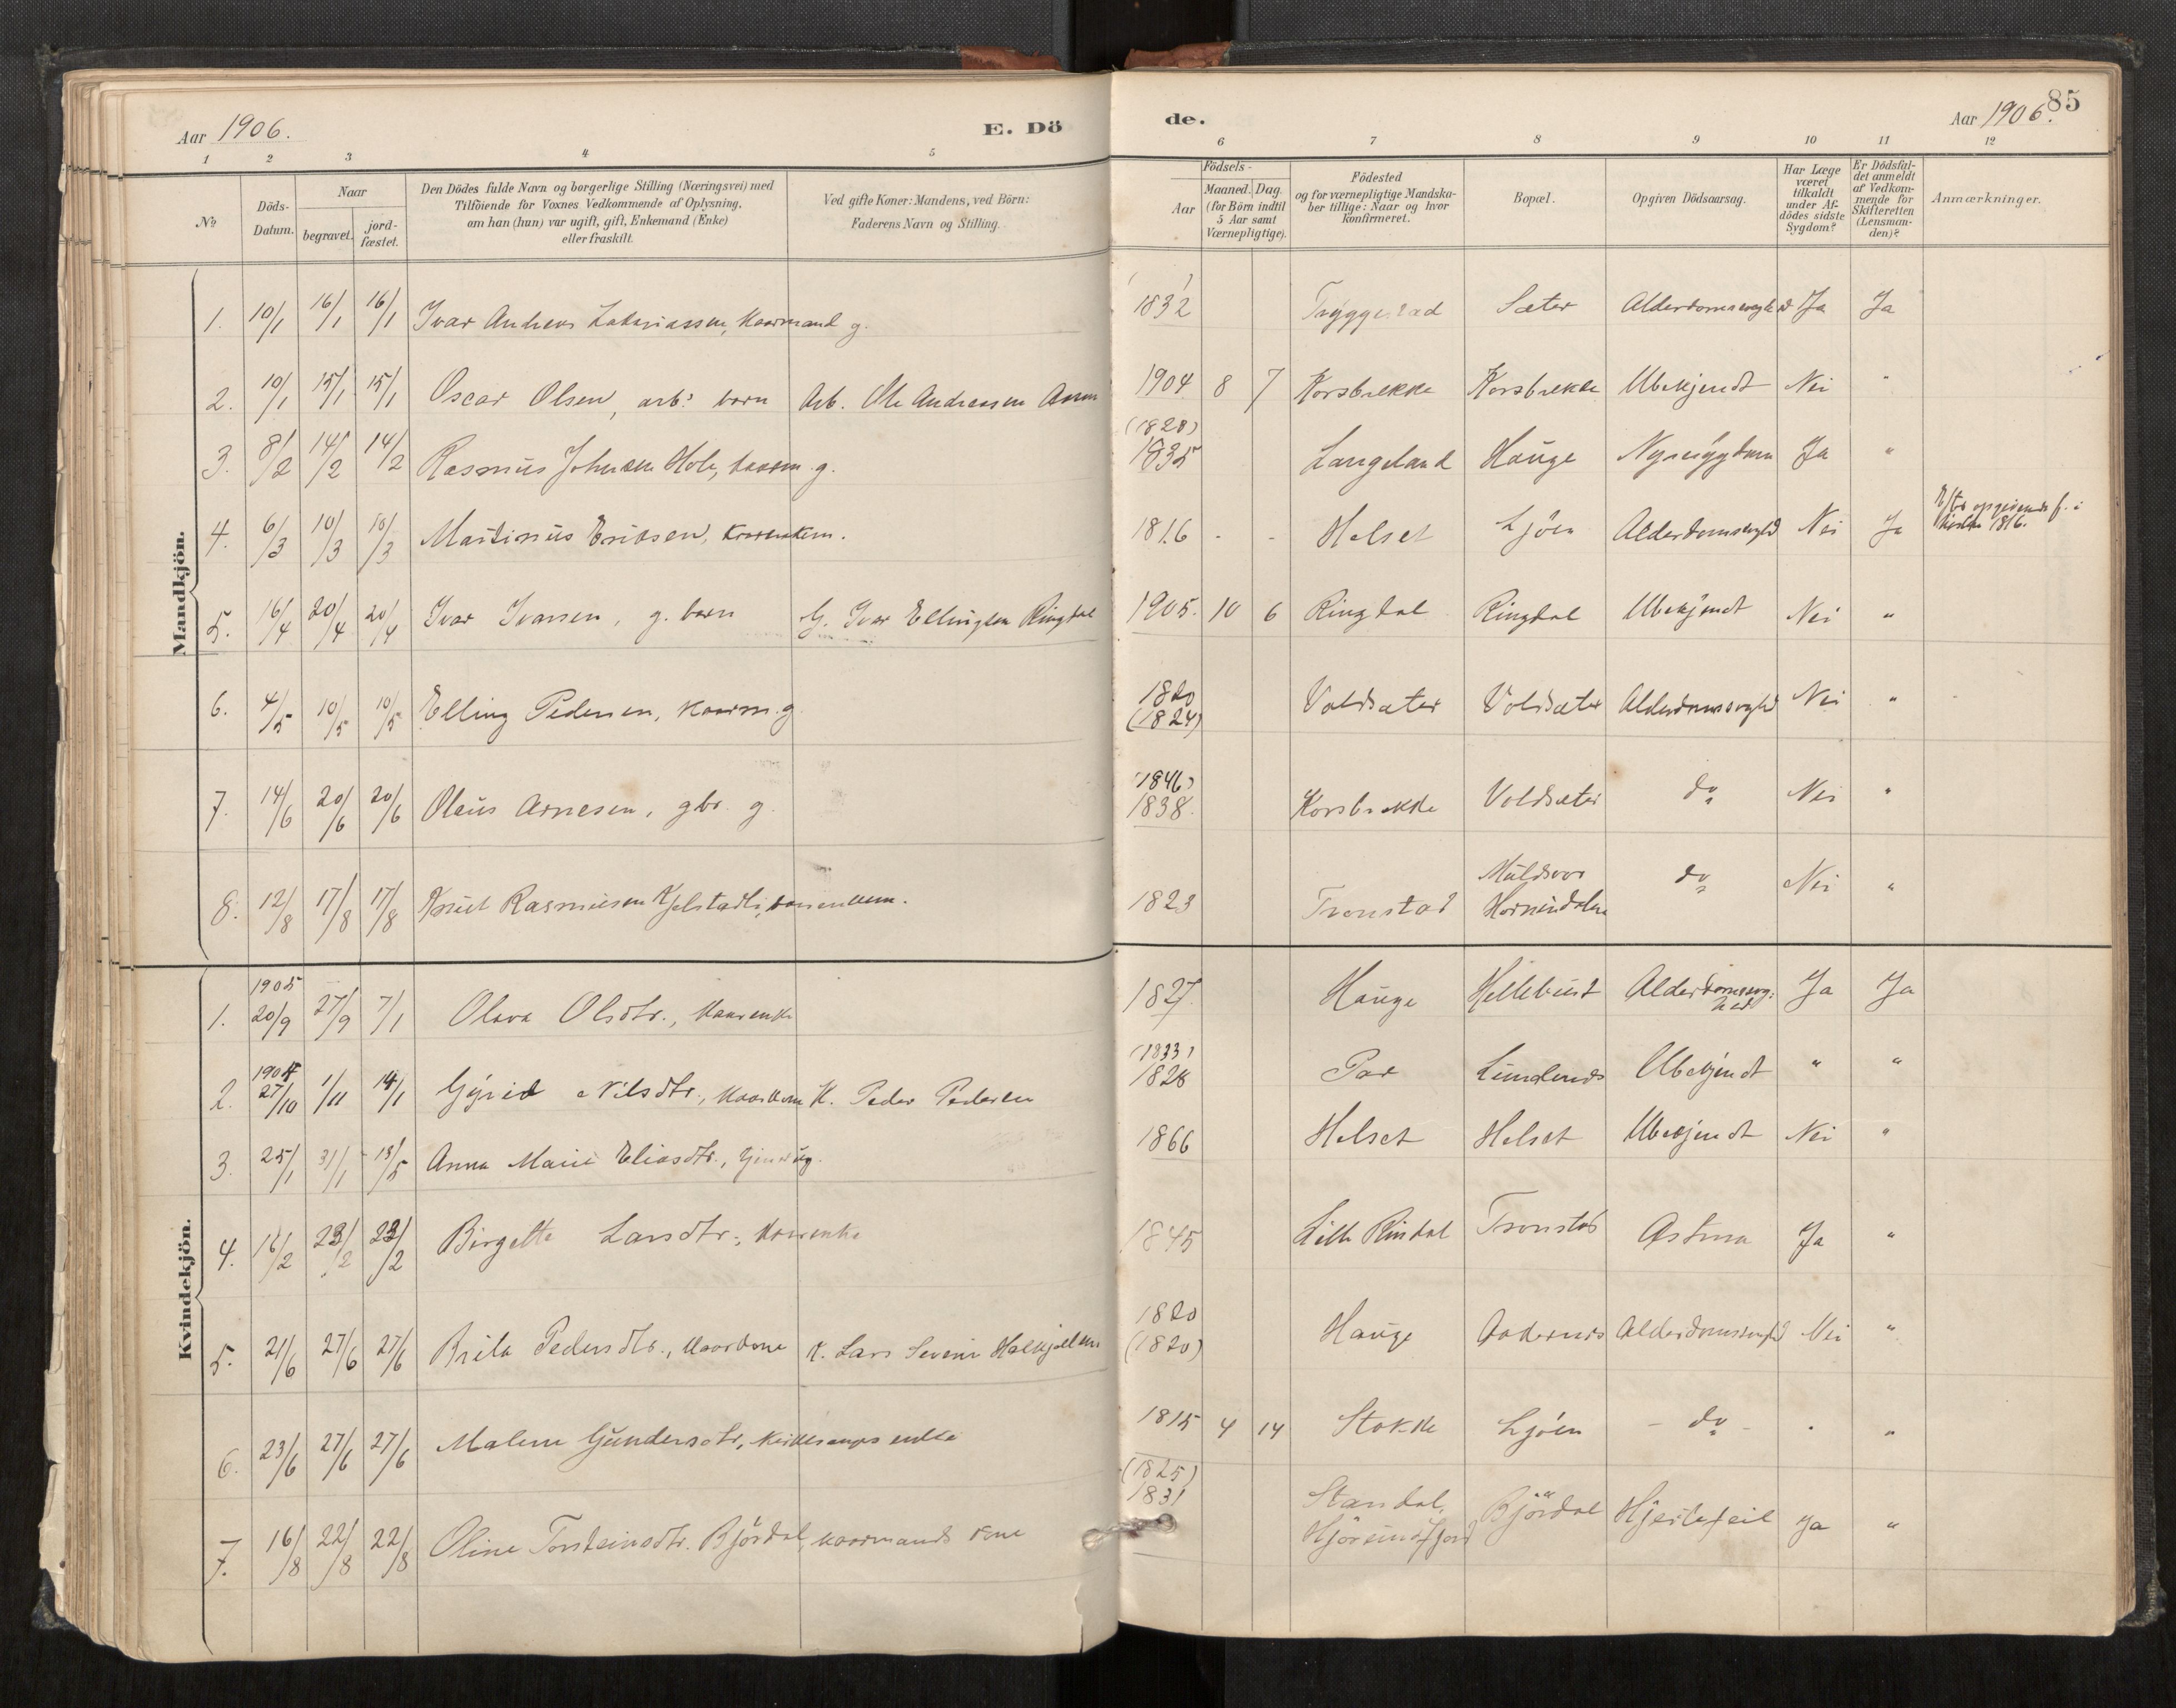 Aar 1906.
E. Dö
de.
Aar 1906.
85
1 2 3 4 5 6 7 8 9 10 11 12
No
Döds-Datum.
Naar
begravet. jord-fæstet.
Den Dödes fulde Navn og borgerlige Stilling (Næringsvei) med
Tilföiende for Voxnes Vedkommende af Oplysning,
om han (hun) var ugift, gift, Enkemand (Enke)
eller fraskilt.
Ved gifte Koner: Mandens, ved Börn:
Faderens Navn og Stilling.
Födsels-
Aar
Maaned. Dag.
(for Börn indtil
5 Aar samt
Værnepligtige).
Födested
og for værnepligtige Mandska-
ber tillige: Naar og hvor
konfirmeret.
Bopæl.
Opgiven Dödsaarsag.
Har Læge
været
tilkaldt
under Af-
dödes sidste
Sygdom?
Er Dödsfal-
det anmeldt
af Vedkom-
mende for
Skifteretten
(Lensman-
den)?
Anmærkninger.
Mandkjön.
1. 10/1 16/1 16/1 Ivar Andreas Zakariassen, kaarmand g. 1832 Tryggestad Sæter Alderdomssvaghed Ja Ja
2. 10/1 15/1 15/1 Oscar Olsen, arb: barn Arb. Ole Andreassen 1904 8 7 Korsbrekke Korsbrekke Ubekjendt Nei "
3. 8/2 14/2 14/2 Rasmus Johnsen Hole, kaarm. g. (1828) 1835 Langeland Hauge Nyresygdom Ja "
4. 6/3 10/3 10/3 Martinus Eriksen, kaarenkem. 1816 - - Helset Ljöen Alderdomssvaghd Nei Ja Efter opgivende f. i 1816.
5. 16/4 20/4 20/4 Ivar Ivarsen, g. barn G. Ivar Ellingsen Ringdal 1905. 10 6 Ringdal Ringdal Ubekjendt Nei "
6. 4/5 10/5 10/5 Elling Pedersen, kaarm. g 1820 (1824) Voldsæter Voldsæter Alderdomssvaghd Nei "
7. 14/6 20/6 20/6 Olaus Arnesen, gbr. g. (1846) 1838. Korsbrekke Voldsæter do Nei "
8. 12/8 17/8 17/8 Knut Rasmusen Kjelstadli, kaarenkem. 1823 Tronstad Muldsvor Hornindalen do Nei "
Kvindekjön.
1. 1905 20/9 27/9 7/1 Olava Olsdtr., kaarenke 1827. Hauge Hellebust Alderdomssvaghed Ja Ja
2. 27/10 1/11 14/1 Gyrid Nilsdtr., kaarkone K. Peder Pedersen (1833) 1828 Par Lundenes Ubekjendt " "
3. 25/1 31/1 18/5 Anna Marie Eliasdtr., 1866 Helset Helset Ubekjendt Nei "
4. 16/2 23/2 23/2 Birgitte Larsdtr., kaarenke 1845 Lille Rindal Tronstad Astma Ja "
5. 21/6 27/6 27/6 Brita Pedersdtr., kaarkone K. Lars Severin 1820 (1820) Hauge Aadernes Alderdomssvaghd Nei "
6. 23/6 27/6 27/6 Malene Gundersdtr., kirkesangers enke 1815 4 14 Stokke Ljöen - do - . "
7. 16/8 22/8 22/8 Oline Torsteinsdtr. Björdal, kaarmands kone (1825) 1831 Standal, Hjörundfjord Björdal Hjertefeil Ja "